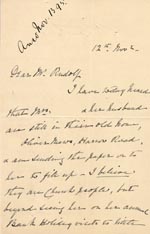 Ansd Nov 13. 95.
12th Nov.
Dear Mr. Rudolf,
I have today heard
that Mrs. & her husband
are still in their old home,
Oliver Mews, Harrow Road,
& am sending the paper on to
her to fill up – I believe
they are Church people, but
beyond seeing her on her annual
Bank Holiday visits to